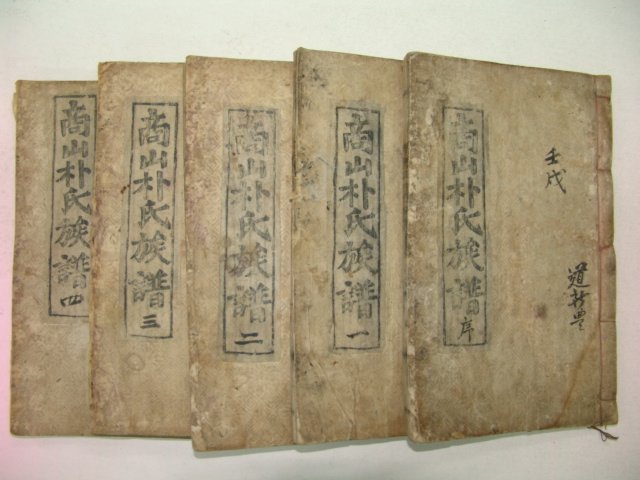 壬戌
商山朴氏族譜序
商山朴氏族譜一
商山朴氏族譜二
商山朴氏族譜三
商山朴氏族譜四